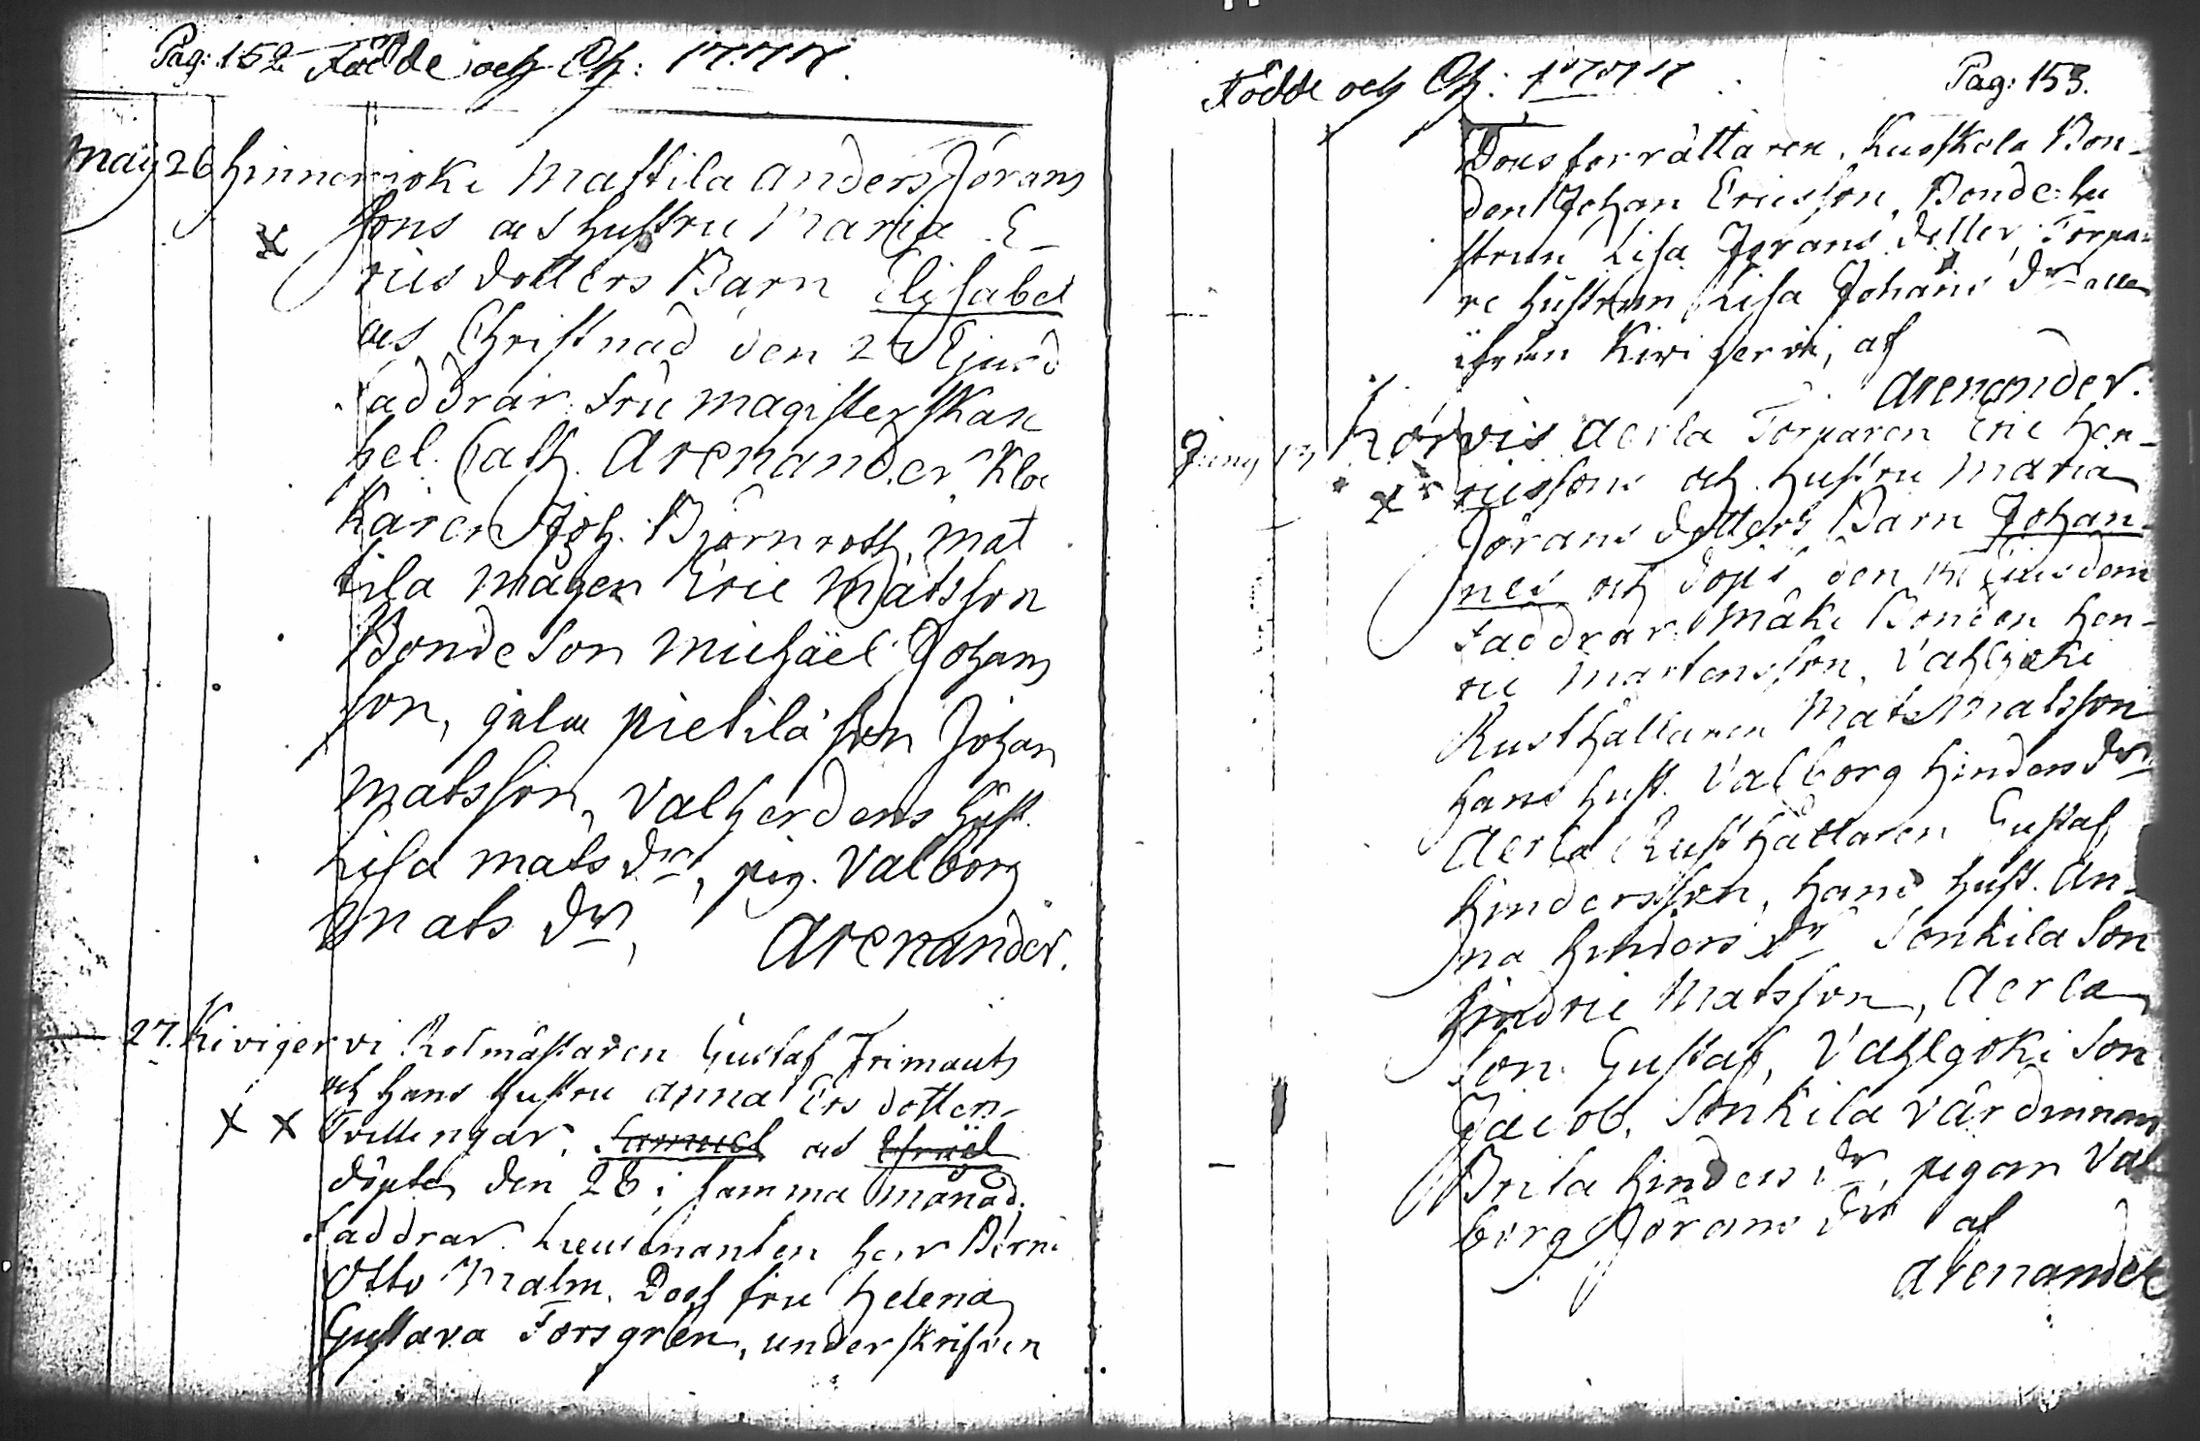 Pag: 152 Födde och Ch: 1777.
Maij 26 Hinnerioki Mattila Anders Jörans
sons och hustru Maria E-
ricsdotters Barn Elisabet
och Christnad den 26 Ejusd
Faddrar. Fru Magisterskan
Hel. Cath. Arenander Kloc
karen Joh. Björnroth, Mat
tila Mågen Eric Matsson
Bonde Son Michäel Johans
son, Pietilä Son Johan
Matsson, Valherdens Hust.
Lisa Mats dr, pig. Valborg
Mats dr,
Arenander.
27. Kivijervi Gustaf
och hans Hustru Anna Ers dotters
Tvillingar, Samuel och Israël
döpte den 28 i samma månad.
Faddrar. Lieutenanten Herr
Otto Malm. Dess fru Helena
Gustava Forsgrén, underskrifven
Födde och Ch: 1777
Pag: 153.
Dopsförrättaren, Bon-
den Johan Ericsson, Bonde hu
strun Lisa Jörans dotter, Torpa-
re hustrun Lisa Johans dr alle
ifrån Kivijervi, af
Arenander.
Juny 13 Horvis Aerla Torparen Eric Hen-
ricssons och Hustru Maria
Jörans dotters Barn Johan-
nes och döpt den Ejusdem
Faddrar. Mäki Bonden Hen-
ric Mårtensson, Vahljoki
Rusthållaren Mats Matsson
hans hust. Valborg Hinders dr
Aerla Rusthållaren Gustaf
Hindersson, hans hust. An-
na Hinders dr Sonkila Son
Hindric Matsson, Aerla
Son Gustaf, Vahljoki Son
Jacob, Sonkila värdinnan
Brita Hinders dr, pigan Val
borg Jörans dr af
Arenander